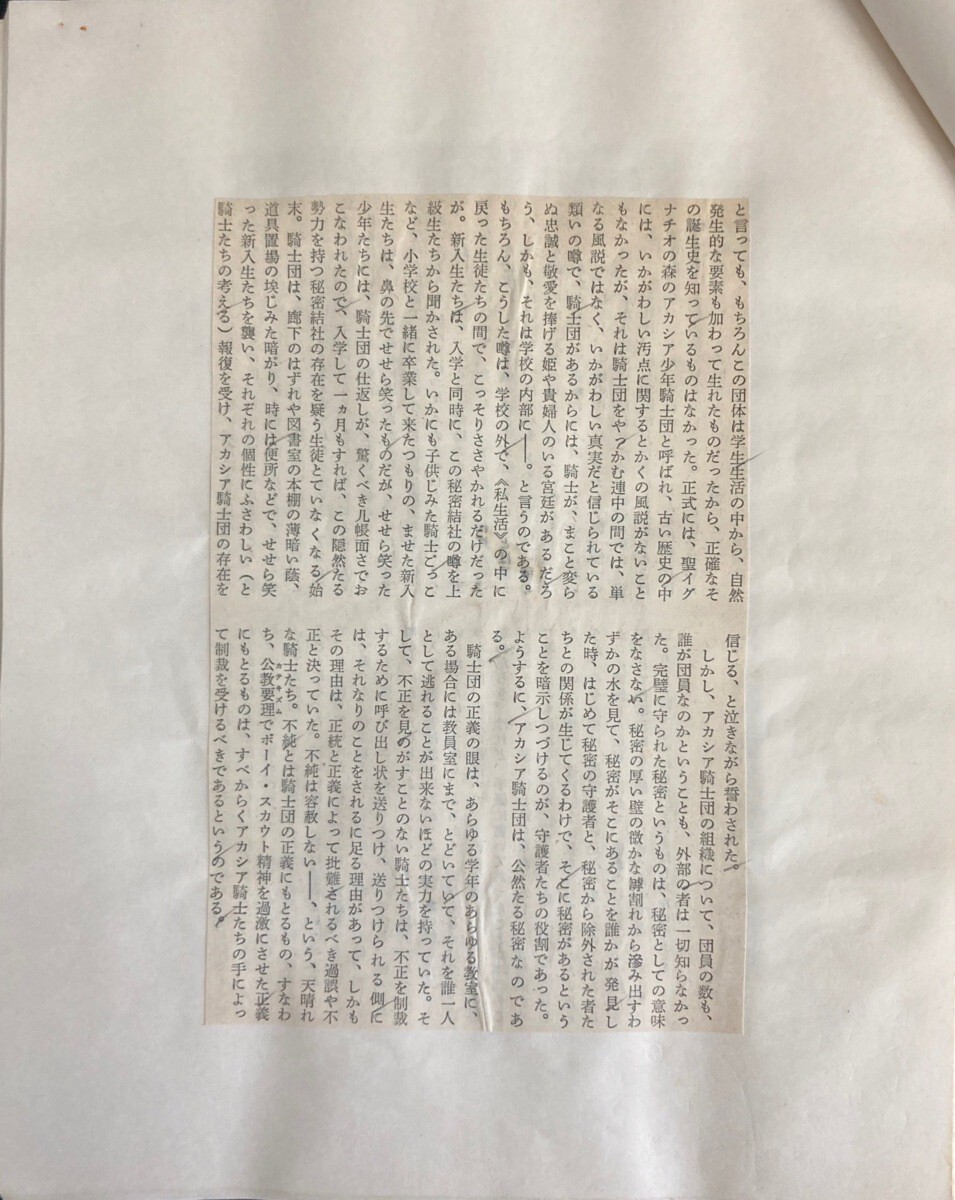 と言っても、もちろんこの団体は学生生活の中から、自然
発生的な要素も加わって生れたものだったから、正確なそ
の誕生史を知っているものはなかった。正式には、聖イグ
ナチオの森のアカシア少年騎士団と呼ばれ、古い歴史の中
には、いかがわしい汚点に関するとかくの風説がないこと
もなかったが、それは騎士団をやっかむ連中の間では、単
なる風説ではなく、いかがわしい真実だと信じられている
類いの噂で、騎士団があるからには、騎士が、まこと変ら
ぬ忠誠と敬愛を捧げる姫や貴婦人のいる宮廷があるだろ
う、しかも、それは学校の内部に――。と言うのである。
もちろん、こうした噂は、学校の外で、《私生活》の中に
戻った生徒たちの間で、こっそりささやかれるだけだった
が。新入生たちは、入学と同時に、この秘密結社の噂を上
級生たちから聞かされた。いかにも子供じみた騎士ごっこ
など、小学校と一緒に卒業して来たつもりの、ませた新入
生たちは、鼻の先でせせら笑ったものだが、せせら笑った
少年たちには、騎士団の仕返しが、驚くべき几帳面さでお
こなわれたので、入学して一ヵ月もすれば、この隠然たる
勢力を持つ秘密結社の存在を疑う生徒とていなくなる始
末。騎士団は、廊下のはずれや図書室の本棚の薄暗い蔭、
道具置場の埃じみた暗がり、時には便所などで、せせら笑
った新入生たちを襲い、それぞれの個性にふさわしい（と
騎士たちの考える）報復を受け、アカシア騎士団の存在を
信じる、と泣きながら誓わされた。
しかし、アカシア騎士団の組織について、団員の数も、
誰が団員なのかということも、外部の者は一切知らなかっ
た。完璧に守られた秘密というものは、秘密としての意味
をなさない。秘密の厚い壁の微かな罅割れから滲み出すわ
ずかの水を見て、秘密がそこにあることを誰かが発見し
た時、はじめて秘密の守護者と、秘密から除外された者た
ちとの関係が生じてくるわけで、そこに秘密があるという
ことを暗示しつづけるのが、守護者たちの役割であった。
ようするに、アカシア騎士団は、公然たる秘密なのであ
る。
騎士団の正義の眼は、あらゆる学年のあらゆる教室に、
ある場合には教員室にまで、とどいていて、それを誰一人
として逃れることが出来ないほどの実力を持っていた。そ
して、不正を見のがすことのない騎士たちは、不正を制裁
するために呼び出し状を送りつけ、送りつけられる側に
は、それなりのことをされるに足る理由があって、しかも
その理由は、正統と正義によって批難されるべき過誤や不
正と決っていた。不純は容赦しない――、という、天晴れ
な騎士たち。不純とは騎士団の正義にもとるもの、すなわ
ち、公教要理でボーイ・スカウト精神を過激にさせた正義
にもとるものは、すべからくアカシア騎士たちの手によっ
て制裁を受けるべきであるというのである。